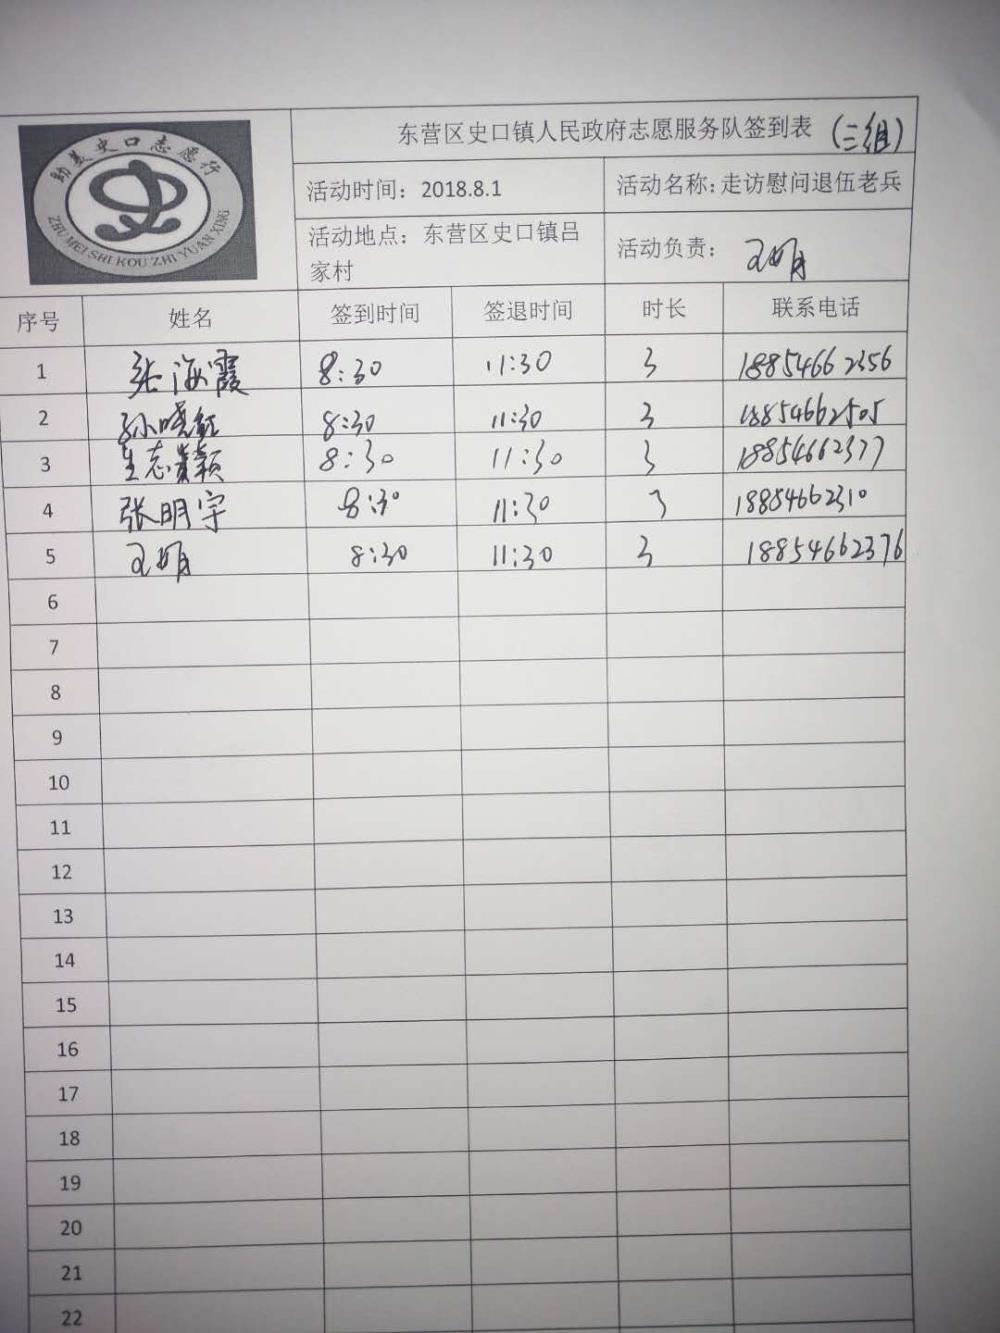 助美史口志愿行
ZHU MEI SHI KOU ZHI YUAN XING
东营区史口镇人民政府志愿服务队签到表 (三组)
活动时间: 2018.8.1 活动名称: 走访慰问退伍老兵
活动地点: 东营区史口镇吕
家村
活动负责: 王明
序号 姓名 签到时间 签退时间 时长 联系电话
1 张海霞 8:30 11:30 3 18854662356
2 孙晓红 8:30 11:30 3 18854662505
3 生志颖 8:30 11:30 3 18854662377
4 张明宇 8:30 11:30 3 18854662310
5 8:30 11:30 3 18854662376
6
7
8
9
10
11
12
13
14
15
16
17
18
19
20
21
22